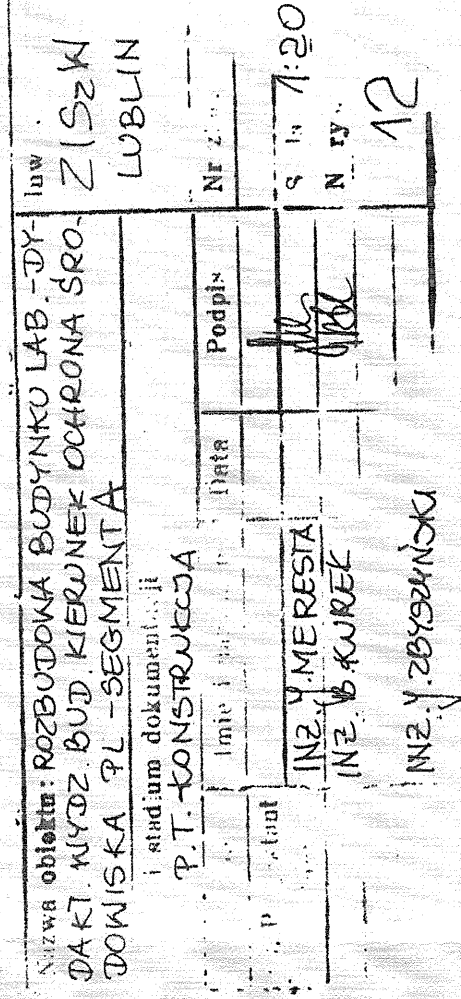 Nazwa obiektu: ROZBUDOWA BUDYNKU LAB.-DY-
DAKT. WYDZ. BUD. KIERUNEK OCHRONA ŚRO-
DOWISKA PL - SEGMENT A
Inw.
ZISzW
LUBLIN
i stadium dokumentacji
P.T. - KONSTRUKCJA
Nr
Imię i
Data
Podpis
INŻ. J. MERESTA
INŻ. B. KUREK
INŻ. J. ZBYSZYŃSKI
1:20
N ry
12